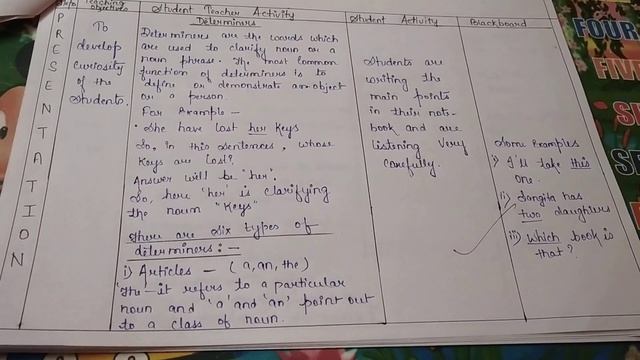 Teaching Objectives
Student Teacher Activity
Student Activity
Blackboard
PRESENTATION
To
develop
curiosity
of the
students.
Determiners
Determiners are the words which
are used to clarify noun or a
noun phrase. The most common
function of determiners is to
define or demonstrate an object
or a person.
For Example –
• She have lost her keys
So, in this sentences, whose
keys are lost?
Answer will be 'her'.
So, here 'her' is clarifying
the noun "keys"
There are six types of
determiners:-
i) Articles – (a, an, the)
'The'- it refers to a particular
noun and 'a' and 'an' point out
to a class of noun.
Students are
writing the
main points
in their note-
book and are
listening very
carefully.
Some Examples
i) I'll take this
one.
ii) Sangita has
two daughters
iii) Which book is
that?
FOUR
FIVE